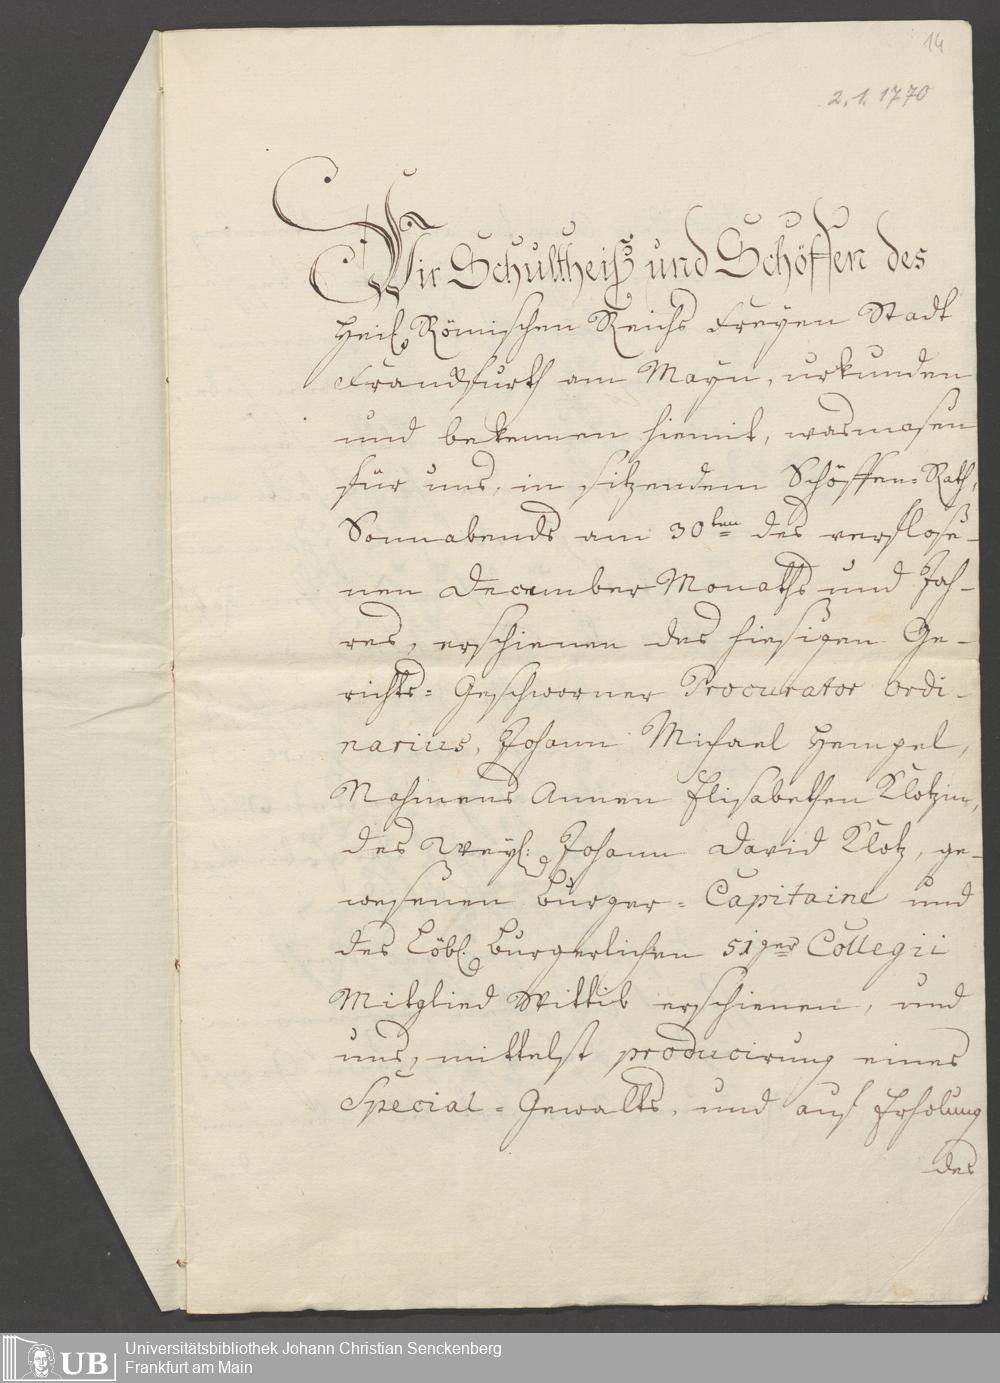 14
2. 1. 1770
Wir Schultheiß und Schöffen des
Heil. Römischen Reichs Freyen Stadt
Franckfurth am Mayn, urkunden
und bekennen hiemit, wasmasen
für uns, in sitzendem Schöffen-Rath,
Sonnabends am 30ten des verflose-
nen December Monaths und Jah-
res, erschienen des hiesigen Ge-
richts-Geschworner Procurator ordi-
narius, Johann Michael Hempel,
Nahmens Annen Elisabethen Klotzin,
des Weyl: Johann David Klotz, ge-
wesenen Burger-Capitaine und
des Löbl. Burgerlichen 51ger Collegii
Mitglied Wittib erschienen, und
uns, mittelst producirung eines
Special-Gewalts, und auf Erholung
des
UB Universitätsbibliothek Johann Christian Senckenberg
Frankfurt am Main